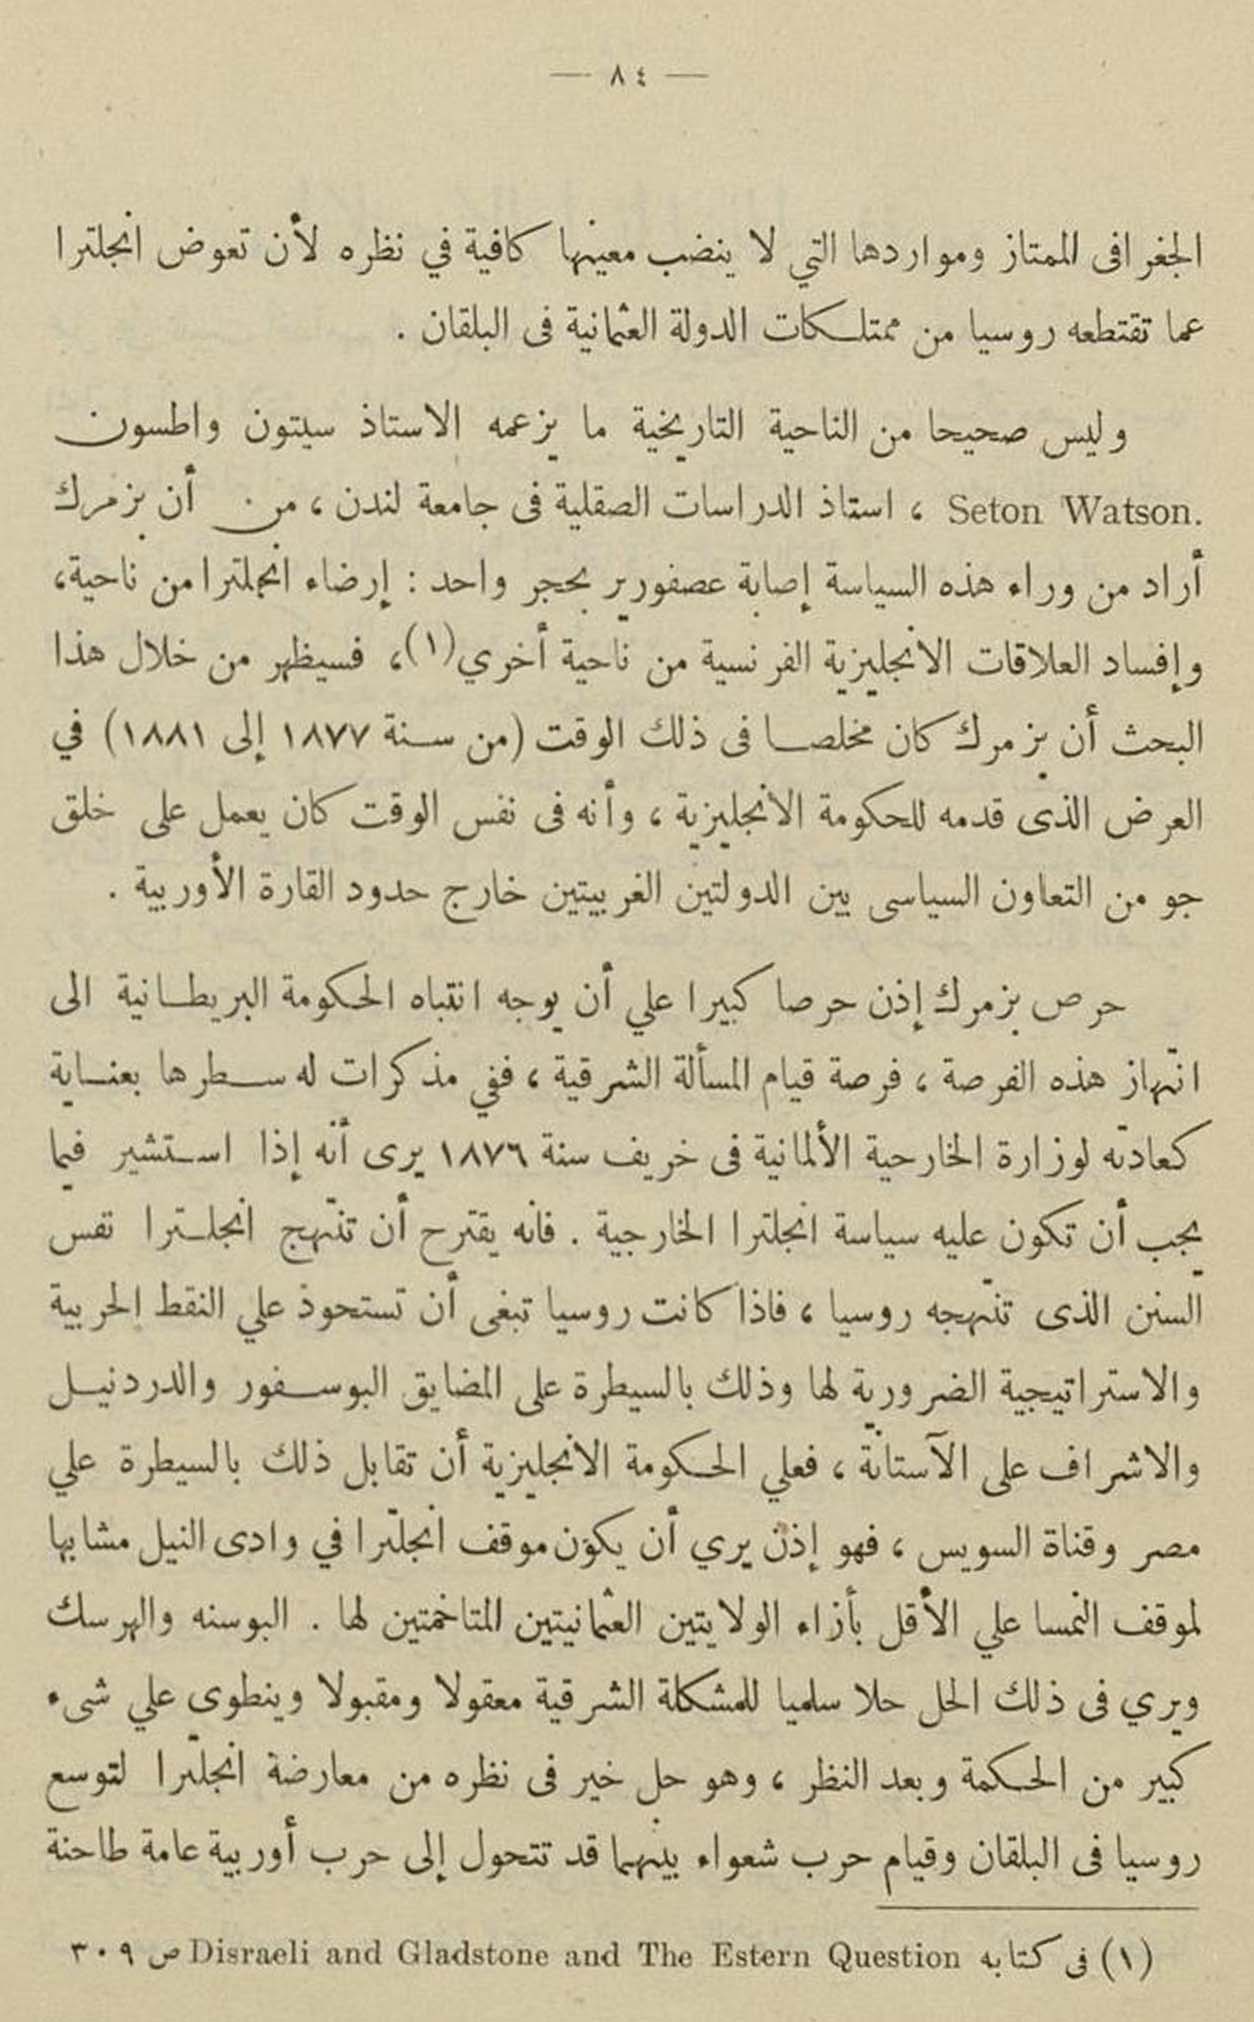 — ٨٤ —
الجغرافى الممتاز ومواردها التي لا ينضب معينها كافية في نظره لأن تعوض انجلترا
عما تقتطعه روسيا من ممتلكات الدولة العثمانية فى البلقان .
وليس صحيحا من الناحية التاريخية ما يزعمه الاستاذ سيتون واطسون
Seton Watson. ، استاذ الدراسات الصقلية فى جامعة لندن ، من أن بزمرك
أراد من وراء هذه السياسة إصابة عصفورير بحجر واحد : إرضاء انجلترا من ناحية،
وإفساد العلاقات الانجليزية الفرنسية من ناحية أخري(١)، فسيظهر من خلال هذا
البحث أن بزمرك كان مخلصا فى ذلك الوقت (من سنة ١٨٧٧ إلى ١٨٨١) في
العرض الذى قدمه للحكومة الانجليزية ، وأنه فى نفس الوقت كان يعمل على خلق
جو من التعاون السياسى بين الدولتين الغربيتين خارج حدود القارة الأوربية .
حرص بزمرك إذن حرصا كبيرا علي أن يوجه انتباه الحكومة البريطانية الى
انتهاز هذه الفرصة ، فرصة قيام المسألة الشرقية ، ففي مذكرات له سطرها بعناية
كعادته لوزارة الخارحية الألمانية فى خريف سنة ١٨٧٦ يرى أنه إذا استشير فيما
يجب أن تكون عليه سياسة انجلترا الخارجية . فانه يقترح أن تنتهج انجلترا نفس
السنن الذى تنتهجه روسيا ، فاذا كانت روسيا تبغى أن تستحوذ علي النقط الحربية
والاستراتيجية الضرورية لها وذلك بالسيطرة على المضايق البوسفور والدردنيل
والاشراف على الآستانة ، فعلي الحكومة الانجليزية أن تقابل ذلك بالسيطرة علي
مصر وقناة السويس ، فهو إذن يري أن يكون موقف انجلترا في وادى النيل مشابها
لموقف النمسا علي الأقل بأزاء الولايتين العثمانيتين المتاخمتين لها . البوسنه والهرسك
ويري فى ذلك الحل حلا سلميا للمشكلة الشرقية معقولا ومقبولا وينطوى علي شىء
كبير من الحكمة وبعد النظر ، وهو حل خير فى نظره من معارضة انجلترا لتوسع
روسيا فى البلقان وقيام حرب شعواء بينهما قد تتحول إلى حرب أوربية عامة طاحنة
(١) فى كتابه Disraeli and Gladstone and The Estern Question ص ٣٠٩